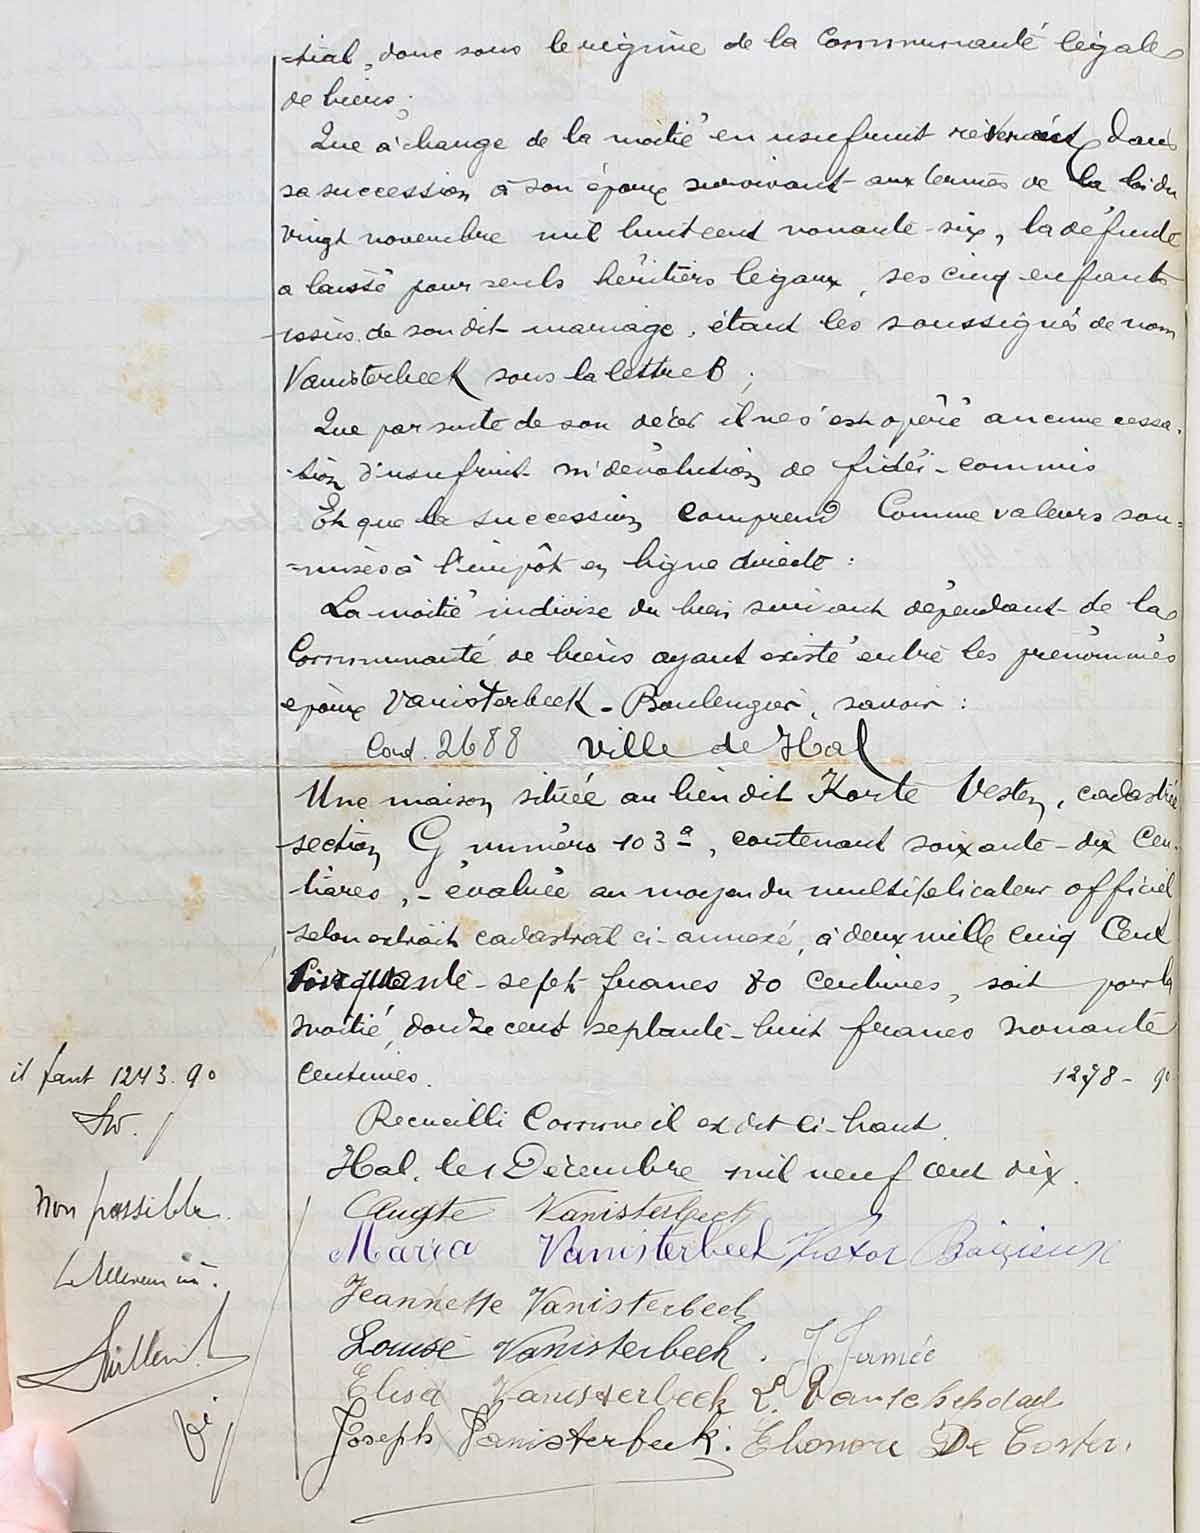 -tial, donc sous le régime de la Communauté légale
de biens;
Que à charge de la moitié en usufruit réservée dans
sa succession à son époux survivant aux termes de la loi du
vingt novembre mil huit cent nonante-six, la défunte
a laissé pour seuls héritiers légaux, ses cinq enfants
issus de son dit mariage, étant les soussignés de nom
Vanisterbeek sous la lettre B;
Que par suite de son décès il ne s'est opéré aucune cessa-
-tion d'usufruit ni dévolution de fidéi-commis
Et que la succession comprend comme valeurs sou=
=mises à l'impôt en ligne directe :
La moitié indivise du bien suivant dépendant de la
Communauté de biens ayant existé entre les prénommés
époux Vanisterbeek - Boulengier, savoir :
2688 Ville de Hal
Une maison située au lieu dit Korte Vesten, cadastrée
section G numéro 103ª, contenant soixante-dix cen-
tiares, - évaluée au moyen du multiplicateur officiel
selon extrait cadastral ci-annexé, à deux mille cinq cent
cinquante-sept francs 80 centimes, soit pour la
moitié, douze cent septante-huit francs nonante
centimes. 1278 - 90
il faut 1243.90
Recueilli comme il est dit ci-haut.
Hal, le 1 Décembre mil neuf cent dix.
non possible.
Augte Vanisterbeek
Maria Vanisterbeek Victor
Jeannette Vanisterbeek
Louise Vanisterbeek.
Elisa Vanisterbeek
Joseph Vanisterbeek. Elonore De Coster.